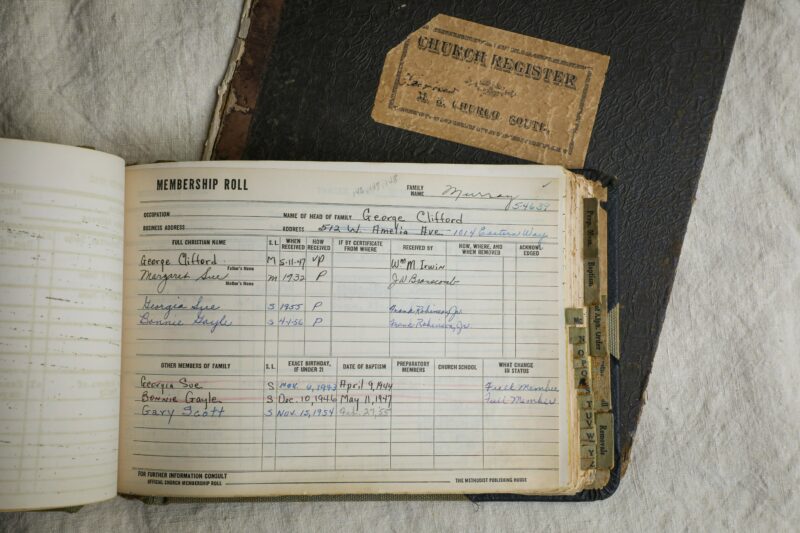 CHURCH REGISTER
M. E. CHURCH SOUTH.
MEMBERSHIP ROLL
FAMILY NAME Murray
54659
OCCUPATION NAME OF HEAD OF FAMILY George Clifford
BUSINESS ADDRESS ADDRESS 512 W. Amelia Ave. - 1614 Eastern Way
FULL CHRISTIAN NAME S. L. WHEN RECEIVED HOW RECEIVED IF BY CERTIFICATE FROM WHERE RECEIVED BY HOW, WHERE, AND WHEN REMOVED ACKNOWLEDGED
George Clifford M 5-11-47 VP Wm M Irwin
Father's Name
Margaret Sue M 1932 P
Mother's Name
Georgia Sue S 1955 P Frank Robinson, Jr.
Bonnie Gayle S 4-1-56 P Frank Robinson, Jr.
OTHER MEMBERS OF FAMILY S. L. EXACT BIRTHDAY, IF UNDER 21 DATE OF BAPTISM PREPARATORY MEMBERS CHURCH SCHOOL WHAT CHANGE IN STATUS
Georgia Sue S Nov. 6, 1943 April 9, 1944 Full Member
Bonnie Gayle S Dec. 10, 1946 May 11, 1947 Full Member
Gary Scott S Nov. 15, 1954
FOR FURTHER INFORMATION CONSULT
OFFICIAL CHURCH MEMBERSHIP ROLL THE METHODIST PUBLISHING HOUSE
Prep. Mem.
Baptism
Removals